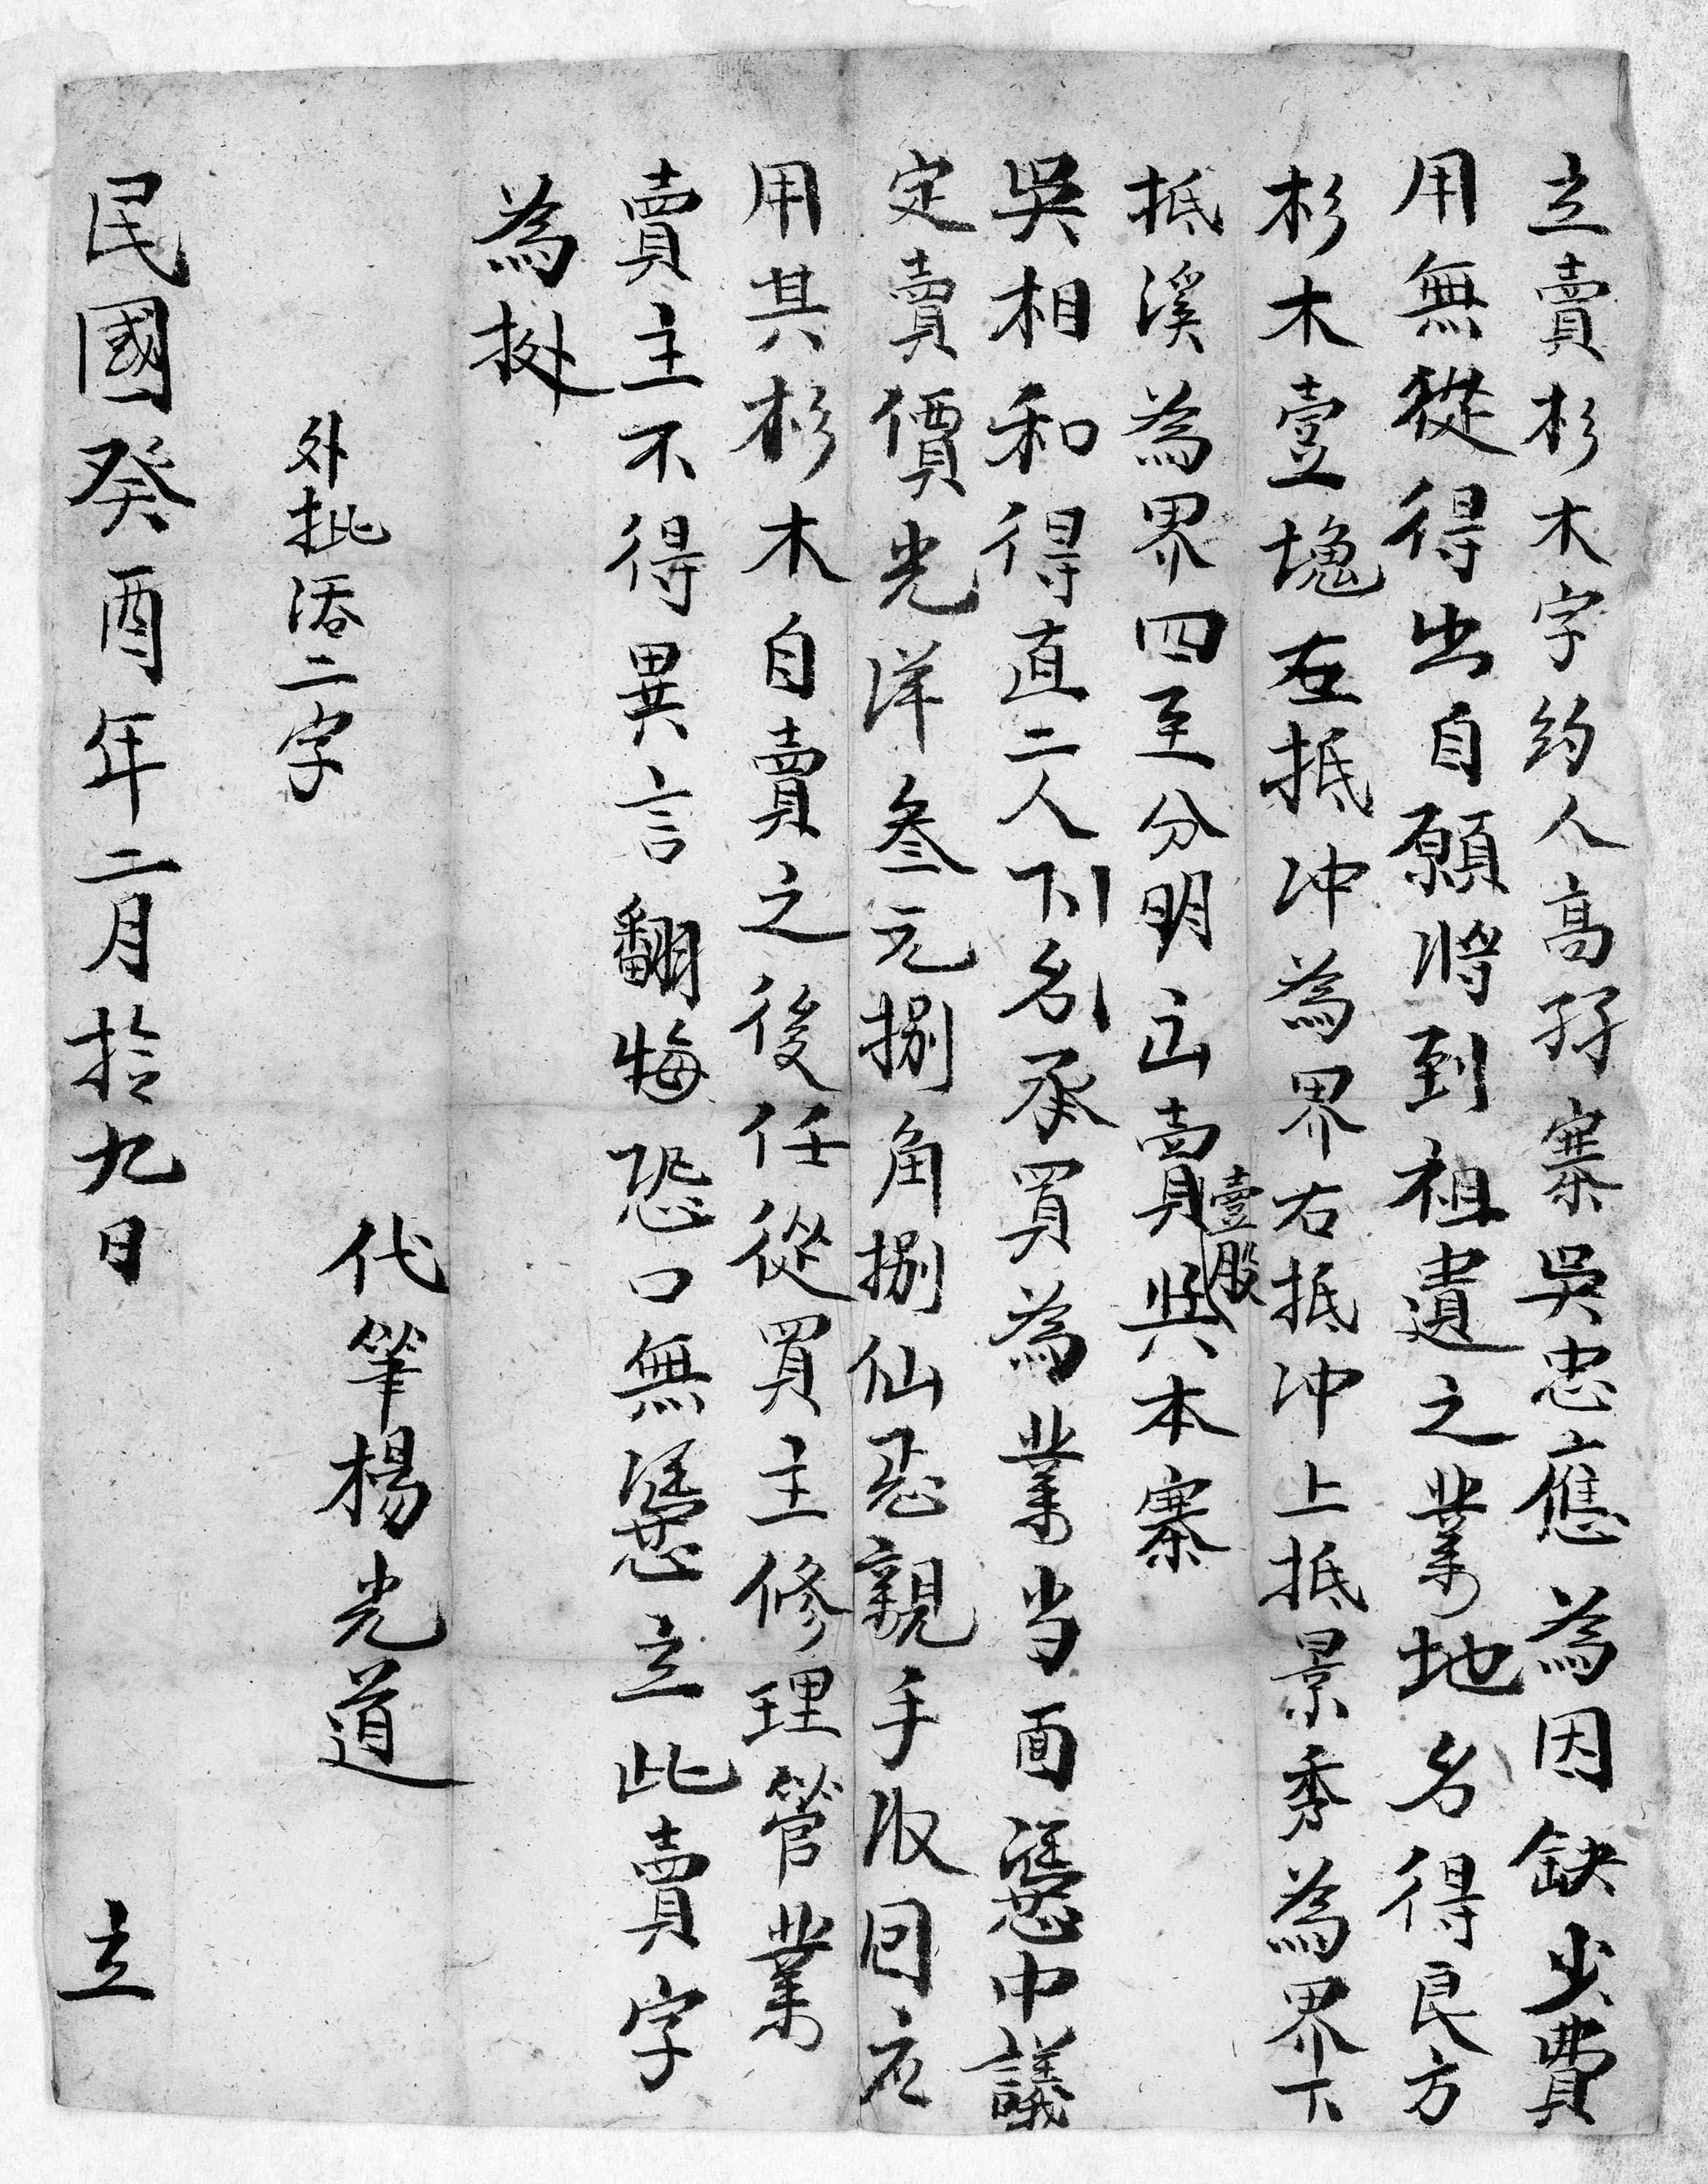 立賣杉木字約人高孖寨吳忠應為因缺少費
用無從得出自願將到祖遺之業地名得良方
杉木壹塊左抵冲為界右抵冲上抵景秀為界下
抵溪為界四至分明出賣壹股與本寨
吳相和得直二人下名承買為業当面憑中議
定賣價光洋叄元捌角捌仙忍親手收回应
用其杉木自賣之後任從買主修理管業
賣主不得異言翻悔恐口無憑立此賣字
為挻
外批添二字
代筆楊光道
民國癸酉年二月拾九日 立